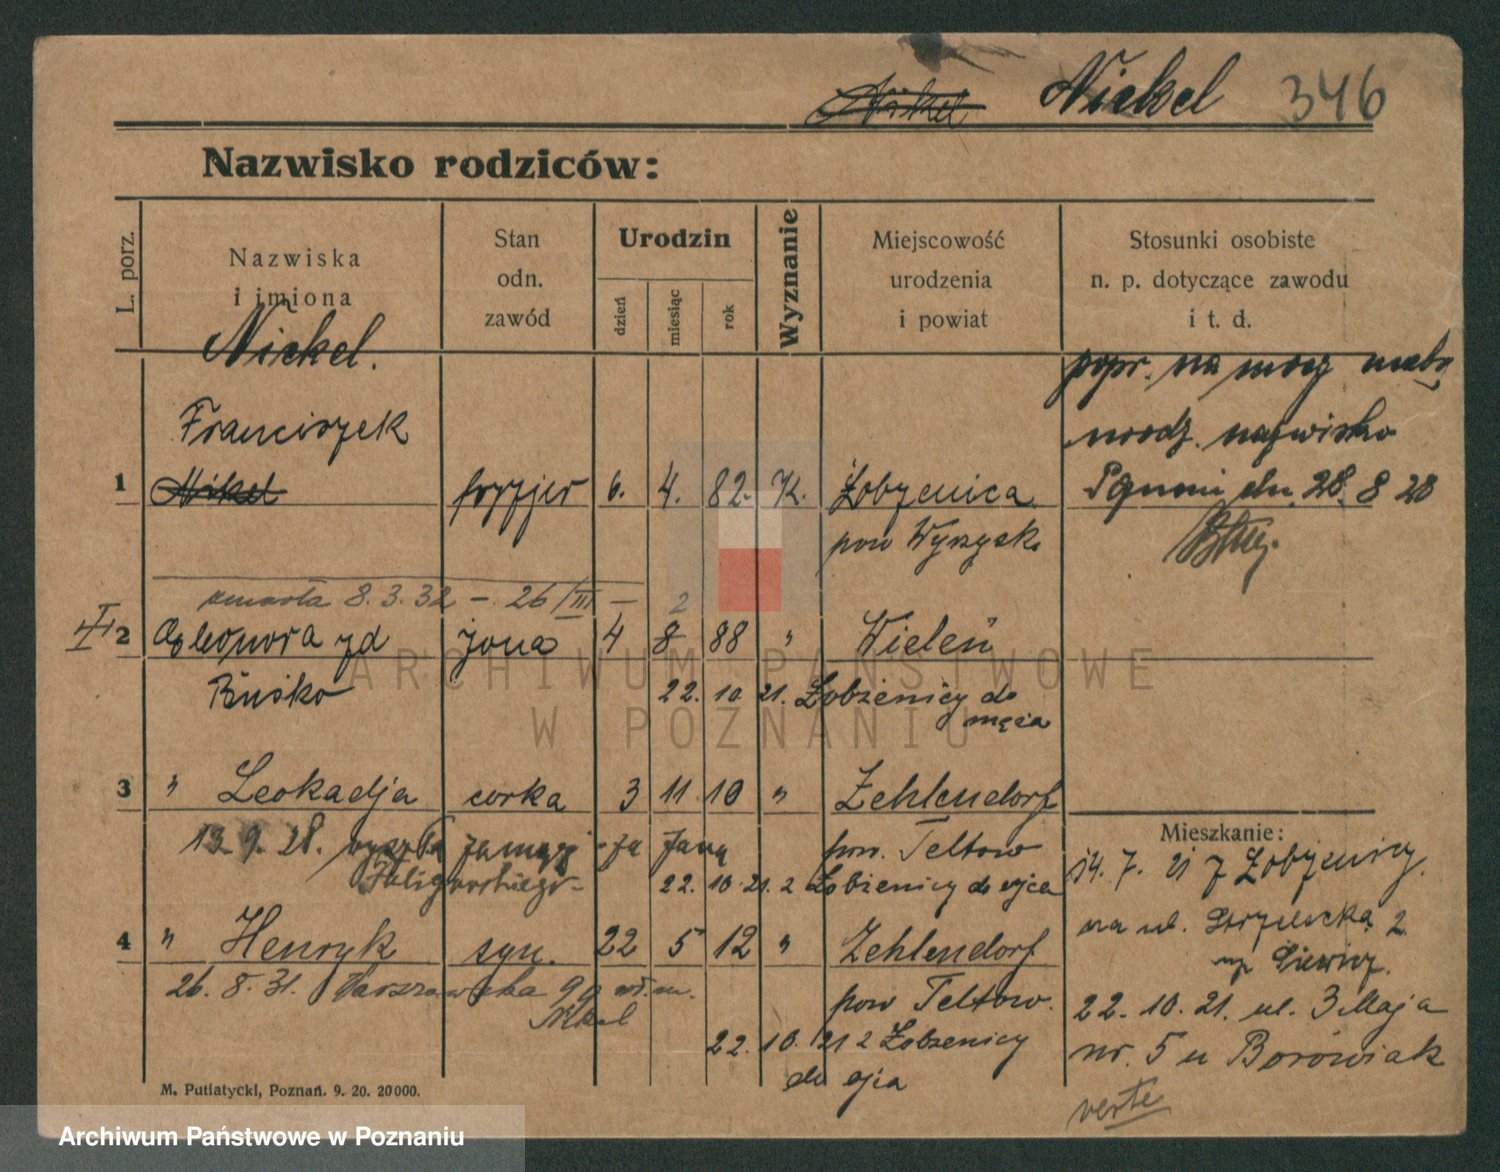 Nikel Nickel 346
Nazwisko rodziców:
L. porz.
Nazwiska
i imiona
Stan
odn.
zawód
Urodzin
dzień
miesiąc
rok
Wyznanie
Miejscowość
urodzenia
i powiat
Stosunki osobiste
n. p. dotyczące zawodu
i t. d.
Nickel.
popr. na mocy
Franciszek
urodz. nazwisko
1 Nikel fryzjer 6. 4. 82. K. Łobzenica dn. 28. 8 28
pow Wyrzysk
zmarła 8. 3. 32 – 26/III – 2
2 Eleonora zd żona 4 8 88 " Wieleń
Buśko 22. 10 21. Łobżenicy do
męża
3 " Leokadja corka 3 11 10 " Zehlendorf
Mieszkanie:
13. 9. 28. wyszła zamąż za Jana pow. Teltow
14. 7. 21 z Łobzenicy.
22. 10. 21. z Łobżenicy do ojca
na ul. 2
4 " Henryk syn. 22 5 12 " Zehlendorf
26. 8. 31. Warszawska 99
Nikel
pow Teltow.
22. 10. 21. ul. 3 Maja
22. 10. 21 z Łobzenicy
nr. 5 u Borowiak
do ojca
verte
M. Putiatycki, Poznań. 9. 20. 20000.
ARCHIWUM PAŃSTWOWE
W POZNANIU
Archiwum Państwowe w Poznaniu